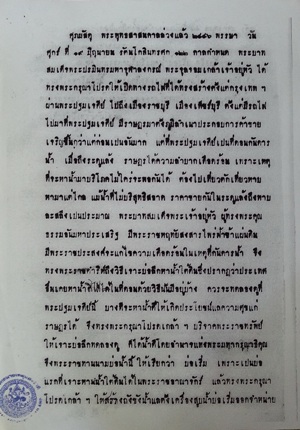 ศุภมัสดุ พระพุทธสาสนกาลล่วงแล้ว ๒๔๔๖ พรรษา วัน
ศุกร์ ที่ ๑๙ มิถุนายน รัตนโกสินทรศก ๑๒๒ กาลกำหนด พระบาท
สมเด็จพระปรมินทรมหาจุฬาลงกรณ์ พระจุลจอมเกล้าเจ้าอยู่หัว ได้
ทรงพระกรุณาโปรดให้เปิดทางรถไฟที่ได้ทรงสร้างตั้งแต่กรุงเทพ ฯ
ผ่านพระปฐมเจดีย์ ไปถึงเมืองราชบุรี เมืองเพชร์บุรี ตั้งแต่มีรถไฟ
ไปมาที่พระปฐมเจดีย์ มีราษฎรมาตั้งภูมิลำเนาประกอบการค้าขาย
เจริญขึ้นกว่าแต่ก่อนเป็นอันมาก แต่ที่พระปฐมเจดีย์เปนที่ดอนกันดาร
น้ำ เมื่อถึงระดูแล้ง ราษฎรได้ความลำบากเดือดร้อน เพราะเหตุ
ที่จะหาน้ำมาบริโภคไม่ใคร่จะพอกันได้ ต้องไปเที่ยวตักเที่ยวหาบ
หามาแต่ไกล แม้น้ำที่ไม่บริสุทธิสอาด ราคาขายกันในระดูแล้งถึงหาบ
ละสลึงเปนประมาณ พระบาทสมเด็จพระเจ้าอยู่หัว ผู้ทรงพระคุณ
ธรรมอันมหาประเสริฐ มีพระราชหฤทัยสงสารไพร่ฟ้าข้าแผ่นดิน
มีพระราชประสงค์จะแก้ไขความเดือดร้อนในเหตุที่กันดารน้ำ จึง
ทรงพระราชดำริห์ถึงวิธีเจาะบ่อลึกหาน้ำใต้ดินซึ่งปรากฏว่าประเทศ
อื่นเคยหาน้ำใช้ได้ในที่ดอนด้วยวิธีนั้นมีอยู่บ้าง ควรจะทดลองดูที่
พระปฐมเจดีย์นี้ บางทีจะหาน้ำที่ให้เกิดประโยชน์แลความศุขแก่
ราษฎรได้ จึงทรงพระกรุณาโปรดเกล้า ฯ บริจาคพระราชทรัพย์
ให้เจาะบ่อลึกทดลองดู ก็ได้น้ำดีโดยอำนาจแห่งพระมหากรุณาธิคุณ
จึงพระราชทานนามบ่อน้ำนี้ ให้เรียกว่า บ่อเริ่ม เพราะเปนบ่อ
แรกที่เจาะหาน้ำใต้ดินได้ในพระราชอาณาจักร์ แล้วทรงพระกรุณา
โปรดเกล้า ฯ ให้สร้างถังขังน้ำแลตั้งเครื่องสูบน้ำบ่อเริ่มออกจำหน่าย